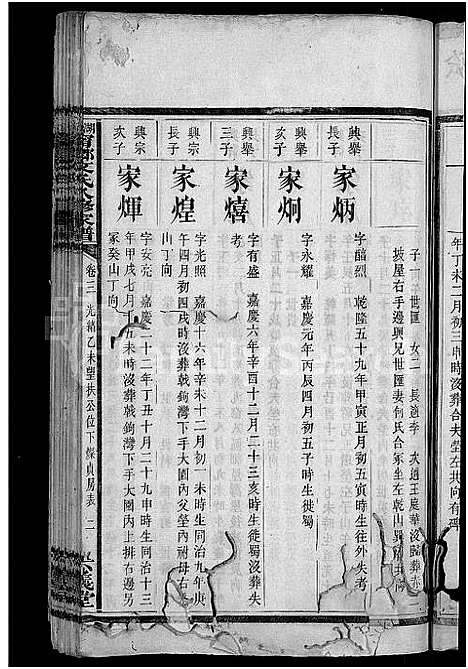 年丁未二月初三申時沒葬合夫塋左共向有碑
子一 世匯 女二 長適李 次適王晟華沒歸葬赤
坡屋右手邊與兄世匯妻何氏合冢坐左乾山巽向共
興舉
長子
家炳
字囍烈 乾隆五十九年甲寅正月初五寅時生往外失考
興舉
次子
家炯
字永耀 嘉慶元年丙辰四月初五子時生徙蜀
興舉
三子
家熺
字有盛 嘉慶六年辛酉十二月二十三亥時生徙蜀沒葬失
考
興宗
長子
家煌
字光照 嘉慶十六年辛未十二月初一未時生同治九年庚
午四月初四戌時沒葬戟鉤灣下手大園內父塋內祔母右
山丁向
興宗
次子
家燀
字安堯 嘉慶二十二年丁丑十月二十九申時生同治十三
年甲戌七月十五未時沒葬戟鉤灣下手大園內上排右邊另
冢癸山丁向
文氏八修家譜
卷三 光緒乙未望扶公位下傑貞房表 二